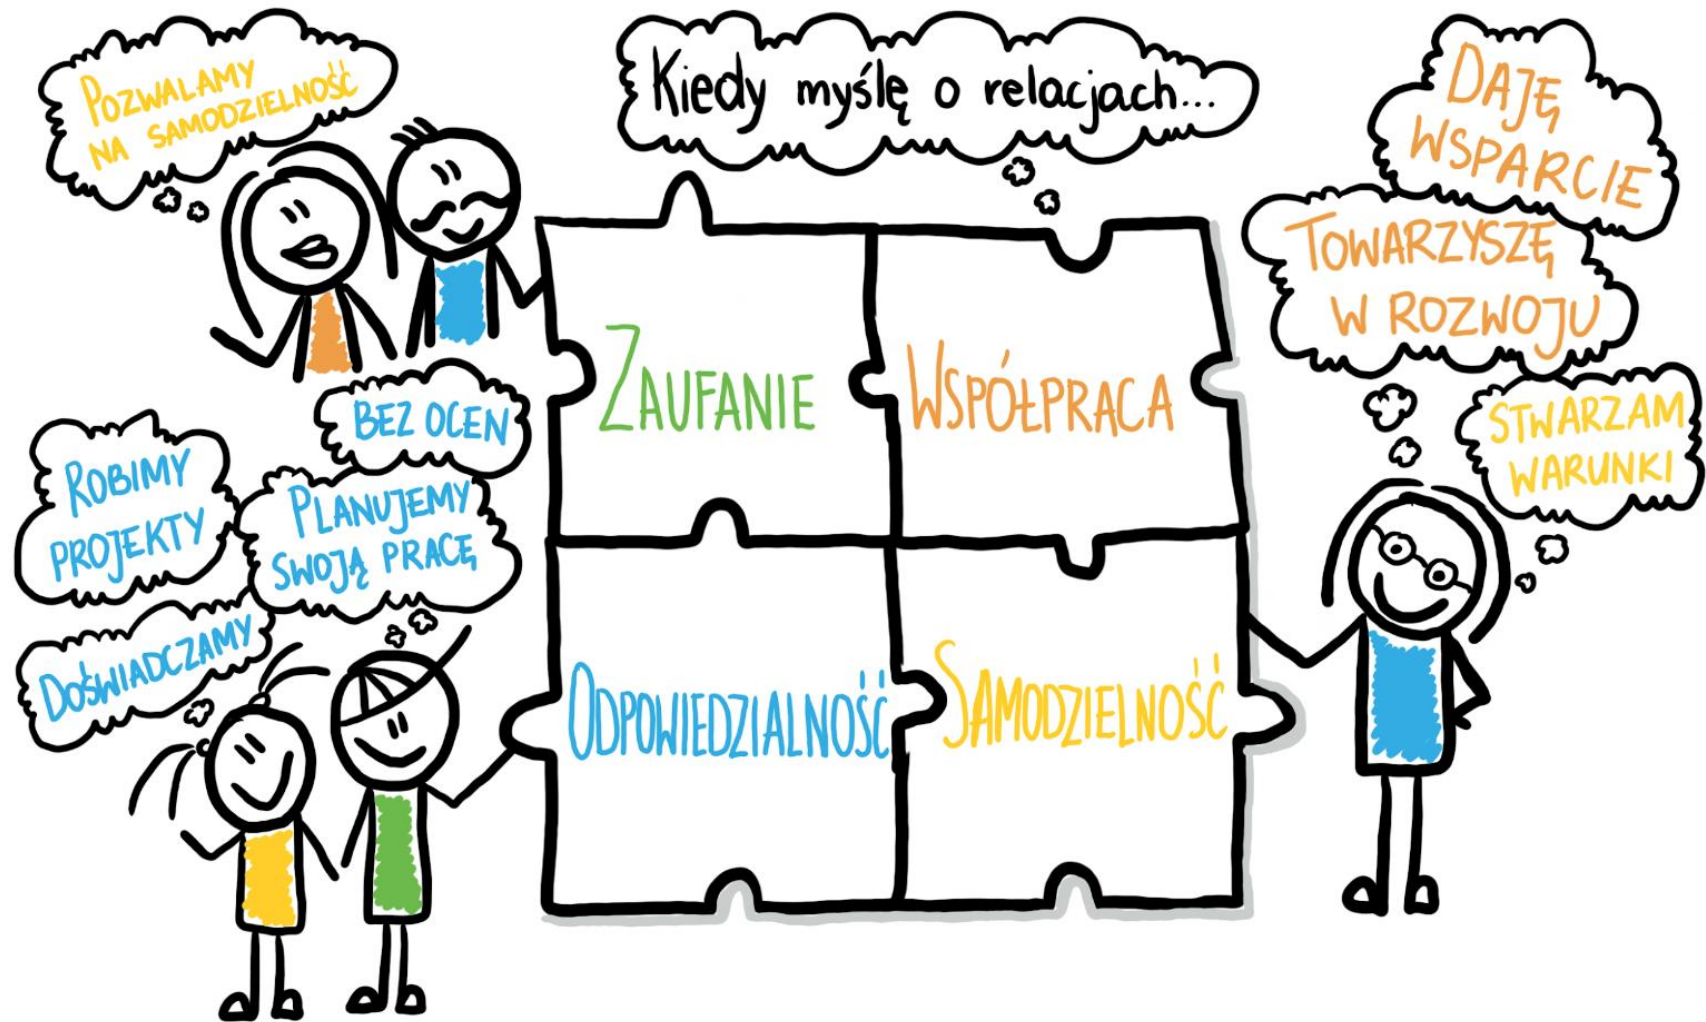 POZWALAMY
NA SAMODZIELNOŚĆ
Kiedy myślę o relacjach...
DAJĘ
WSPARCIE
TOWARZYSZĘ
W ROZWOJU
STWARZAM
WARUNKI
BEZ OCEN
ROBIMY
PROJEKTY
PLANUJEMY
SWOJĄ PRACĘ
DOŚWIADCZAMY
ZAUFANIE
WSPÓŁPRACA
ODPOWIEDZIALNOŚĆ
SAMODZIELNOŚĆ